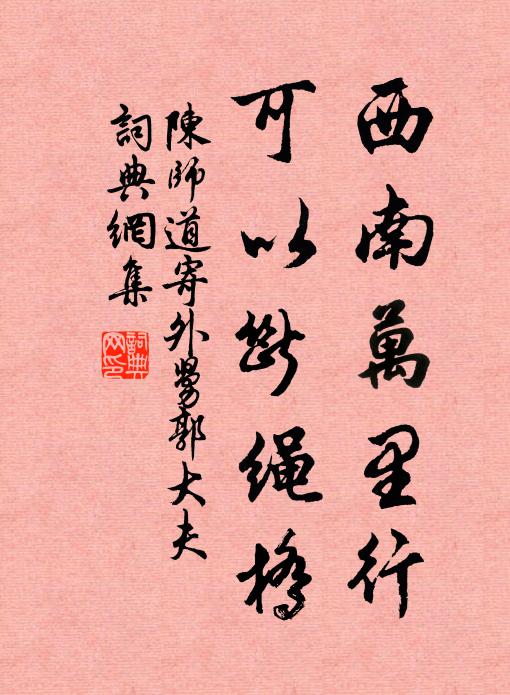 西南萬里行
可以斷繩橋
陳師道寄外舅郭大夫
詞典網集
詞典网印